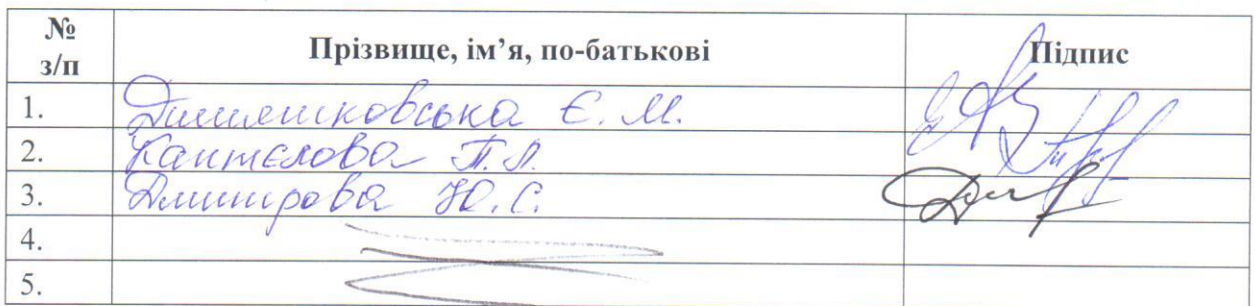 № з/п Прізвище, ім’я, по-батькові Підпис
1. Є. М.
2. Каптєлова П. Л.
3. Дмитрова Ю. С.
4.
5.